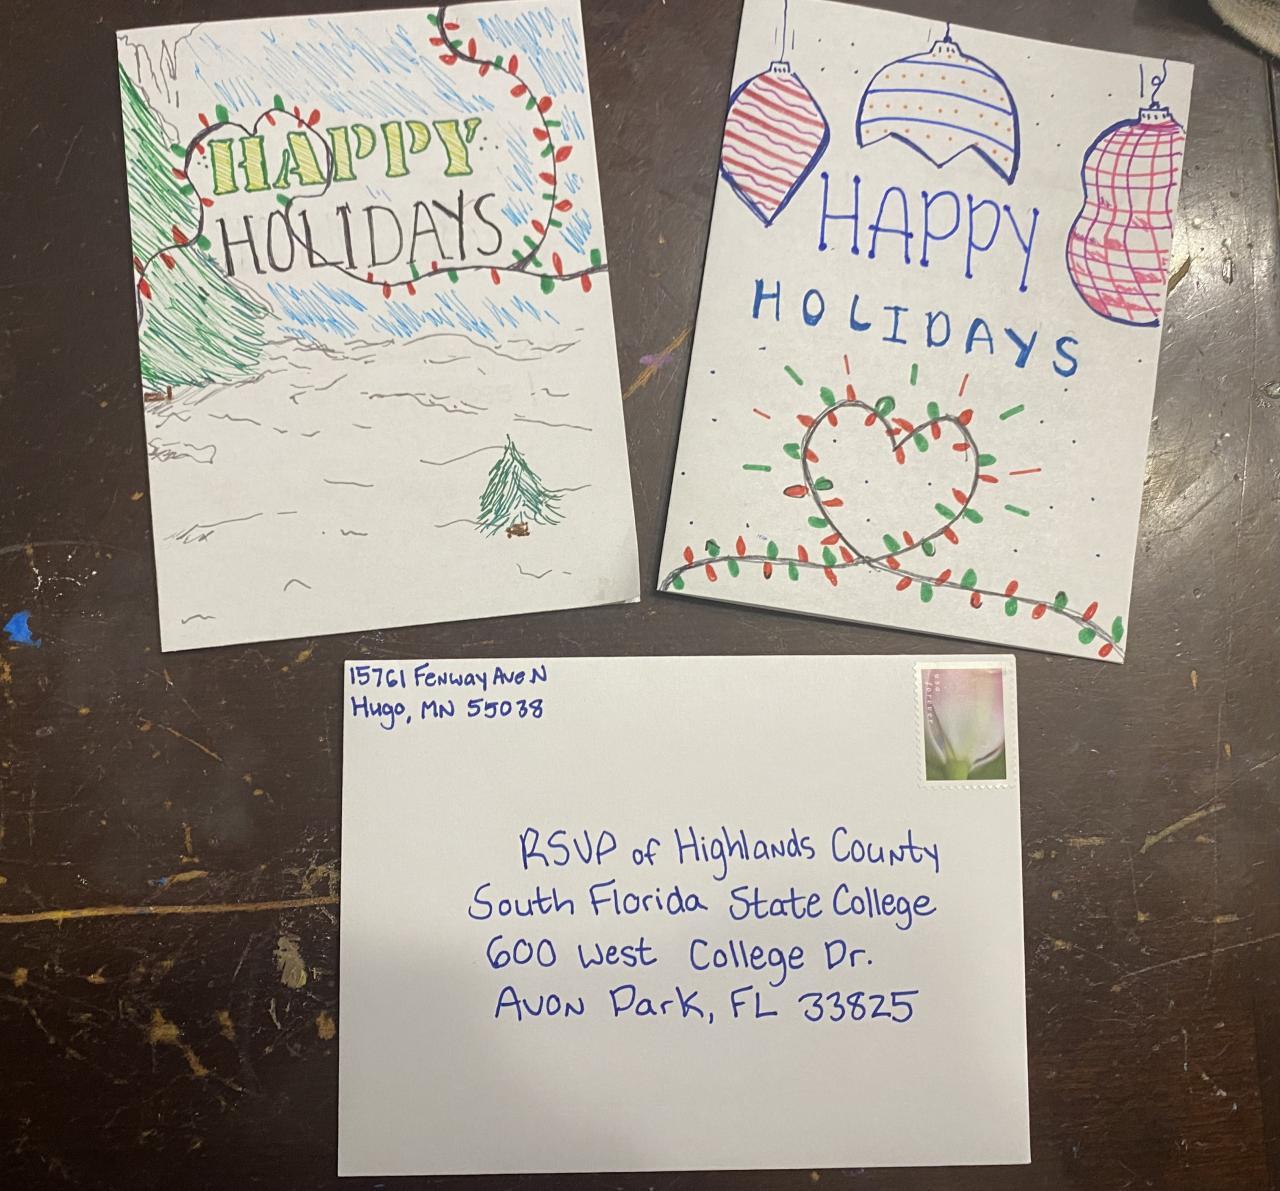 HAPPY
HOLIDAYS
HAPPY
HOLIDAYS
15761 Fenway Ave N
Hugo, MN 55038
usa
forever
RSVP of Highlands County
South Florida State College
600 West College Dr.
Avon Park, FL 33825